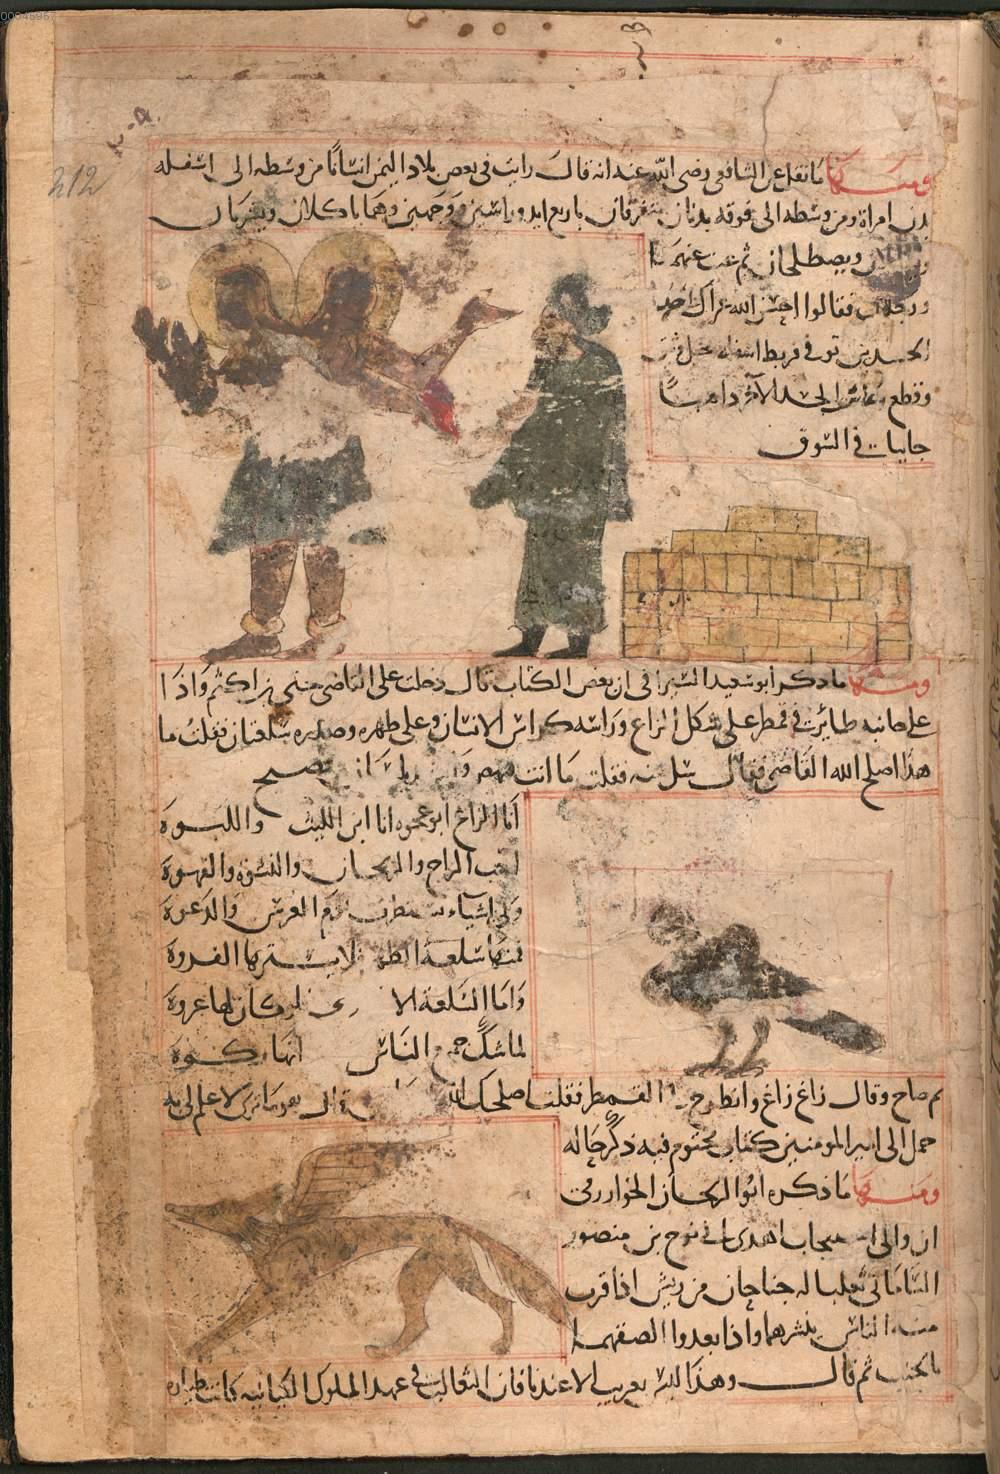 00046967
212
ومنها ما نقل عن الشافعي رضي الله عنه انه قال رايت في بعض بلاد اليمن انسانا من وسطه الى اسفله
بدن امراة ومن وسطه الى فوقه بدنان متفرقان باربع ايد وراسين ووجهين وهما ياكلان ويشربان
ويصطلحان ثم غبت عنهما
ورجعت فقالوا احسن الله عزاك احد
الجسدين توفي فربط اسفله بحبل
وقطع وعاش الجسد الآخر ذاهبا
جايبا في السوق
ومنها ما ذكر ابو سعيد السيرافي ان بعض الكتاب قال دخلت على القاضي يحيى بن اكثم واذا
على جانبه طائر في قمطر على شكل الزاغ وراسه كراس الانسان وعلى ظهره وصدره سلعتان فقلت ما
هذا اصلح الله القاضي فقال سل منه فقلت ما انت فنهض
انا الزاغ ابو عجوه انا ابن الليث واللبوة
احب الراح والريحان والنشوة والقهوة
ولي اشياء يوم العرس والدعوة
فمنها سلعة الظهر لا يسترها الفروة
واما السلعة الاخرى فلو كان لها عروة
لما شك جميع الناس انها ركوة
ثم صاح وقال زاغ زاغ وانطرح القمطر فقلت اصلحك الله لا علم لي به
حمل الى امير المومنين كتاب مختوم فيه ذكر حاله
ومنها ما ذكره ابو الريحان الخوارزمي
ان والي اهدى الى نوح بن منصور
الساماني ثعلبا له جناحان من ريش اذا قرب
منه الناس ينشرهما واذا بعدوا الصقهما
بالجنب ثم قال وهذا ليس بعربب الا عندنا فان الثعالب في عهد الملوك الكيانيه كانت طياره